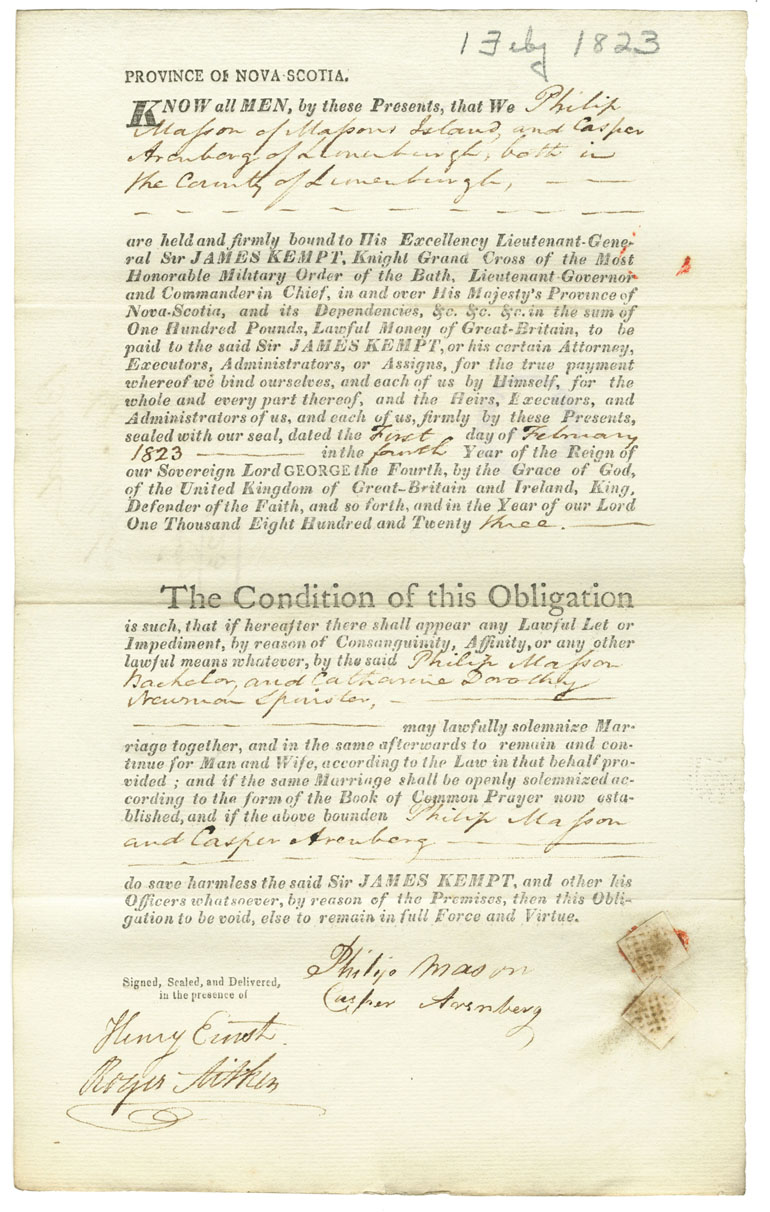 1 Feby 1823
PROVINCE OF NOVA-SCOTIA.
KNOW all MEN, by these Presents, that We Philip
Masson of Massons Island, and Casper
Arenberg of Lunenburgh, both in
the County of Lunenburgh,
are held and firmly bound to His Excellency Lieutenant-Gene-
ral Sir JAMES KEMPT, Knight Grand Cross of the Most
Honorable Military Order of the Bath, Lieutenant-Governor
and Commander in Chief, in and over His Majesty's Province of
Nova-Scotia, and its Dependencies, &c. &c. &c. in the sum of
One Hundred Pounds, Lawful Money of Great-Britain, to be
paid to the said Sir JAMES KEMPT, or his certain Attorney,
Executors, Administrators, or Assigns, for the true payment
whereof we bind ourselves, and each of us by Himself, for the
whole and every part thereof, and the Heirs, Executors, and
Administrators of us, and each of us, firmly by these Presents,
sealed with our seal, dated the First day of February
1823 — in the fourth Year of the Reign of
our Sovereign Lord GEORGE the Fourth, by the Grace of God,
of the United Kingdom of Great-Britain and Ireland, King,
Defender of the Faith, and so forth, and in the Year of our Lord
One Thousand Eight Hundred and Twenty three. —
The Condition of this Obligation
is such, that if hereafter there shall appear any Lawful Let or
Impediment, by reason of Consanguinity, Affinity, or any other
lawful means whatever, by the said Philip Masson
Bachelor, and Catharine Dorothy
Newman Spinster, —
may lawfully solemnize Mar-
riage together, and in the same afterwards to remain and con-
tinue for Man and Wife, according to the Law in that behalf pro-
vided ; and if the same Marriage shall be openly solemnized ac-
cording to the form of the Book of Common Prayer now esta-
blished, and if the above bounden Philip Masson
and Casper Arenberg —
do save harmless the said Sir JAMES KEMPT, and other his
Officers whatsoever, by reason of the Premises, then this Obli-
gation to be void, else to remain in full Force and Virtue.
Signed, Sealed, and Delivered,
in the presence of
Philip Mason
Casper Arenberg
Henry Ernst.
Roger Aitken